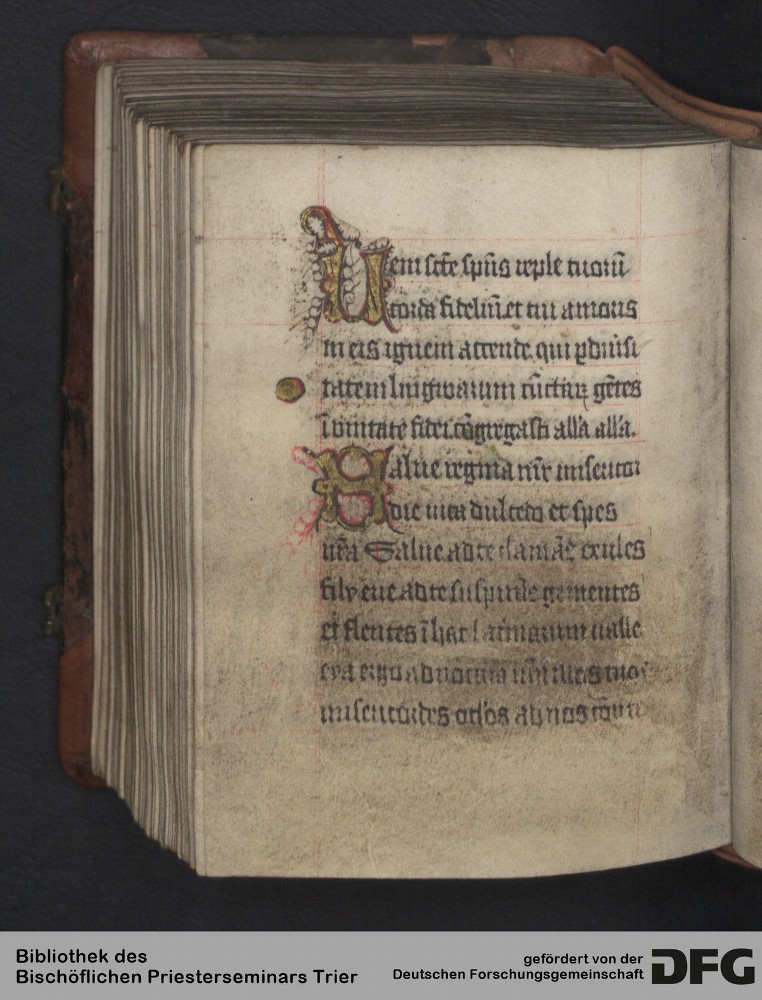 Ueni sc̄te sp̄us reple tuoru̅
corda fideliu̅ et tui amoris
in eis ignem accende qui p̱diuersi
tatem linguarum cu̅ctaꝝ ge̅tes
i̅ unitate fidei co̅gregasti all'a all'a.
Salue regina mi̅e misericor
die uita dulcedo et spes
nr̅a Salue ad te clama̅9 exules
filÿ eue ad te suspira̅9 gementes
et flentes i̅ hac lacrimarum ualle
eya ergo aduocata nr̅a illos tuos
misericordes oc'los ad nos co̅uer
Bibliothek des
Bischöflichen Priesterseminars Trier
gefördert von der
Deutschen Forschungsgemeinschaft
DFG